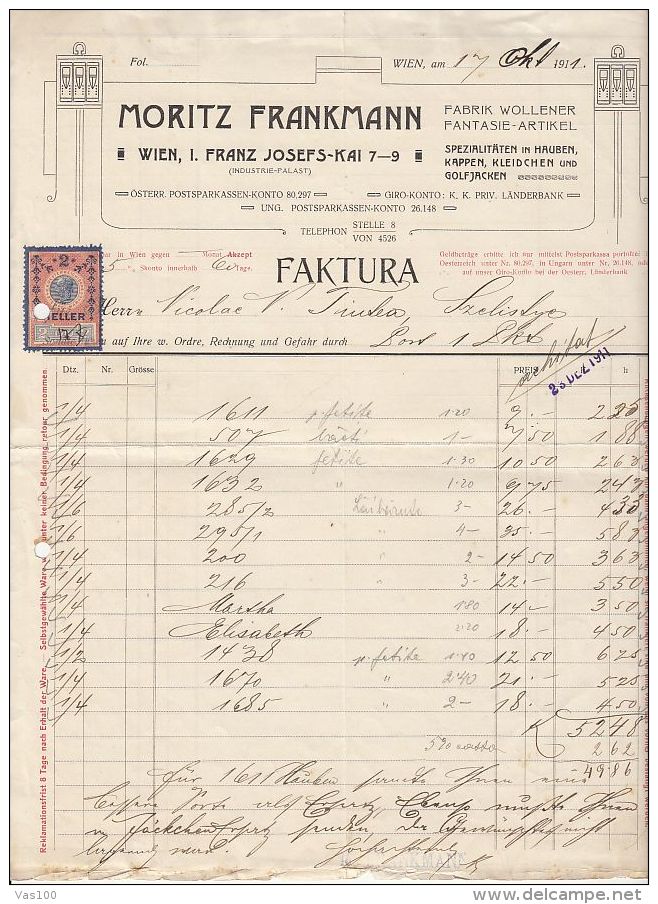 Fol.
WIEN, am 17 Okt 1911.
MORITZ FRANKMANN
FABRIK WOLLENER
FANTASIE-ARTIKEL
WIEN, I. FRANZ JOSEFS-KAI 7—9
(INDUSTRIE-PALAST)
SPEZIALITÄTEN IN HAUBEN,
KAPPEN, KLEIDCHEN UND
GOLFJACKEN
ÖSTERR. POSTSPARKASSEN-KONTO 80,297
GIRO-KONTO: K. K. PRIV. LÄNDERBANK
UNG. POSTSPARKASSEN-KONTO 26.148
TELEPHON STELLE 8 VON 4526
bar in Wien gegen Monat Akzept
Skonto innerhalb Tage.
FAKTURA
Geldbeträge erbitte ich nur mittelst Postsparkassa portofrei:
Oesterreich unter Nr. 80,297, in Ungarn unter Nr. 26.148,
auf unser Giro-Konto bei der Oesterr. Länderbank
2
HELLER
Herrn Nicolae V. Tintea, Szelistye
auf Ihre w. Ordre, Rechnung und Gefahr durch Post 1 Pkt
achitat
23 DEZ 1911
Dtz. Nr. Grösse PREIS h
1/4 1611 p. fetite 1·20 9.— 225
1/4 507 1— 7 50 188
1/4 1629 fetite 1·30 10 50 263
1/4 1632 " 1·20 9 75 243
1/6 285/2 3— 26.— 433
1/6 295/1 " 4— 35.— 583
1/4 200 " 2— 14 50 363
1/4 216 " 3— 22.— 550
1/4 Martha 1·80 14.— 350
1/4 Elisabeth 2·20 18.— 450
1/2 1438 p. fetite 1·40 12 50 625
1/4 1670 " 2·40 21.— 525
1/4 1685 " 2— 18.— 450
K 5248
5% 262
4986
für 161 Hauben sandte Ihnen eine
bessere Sorte als Ersatz, Ebenso musste Ihnen
in Jäckchen Ersatz senden, da
wird.
FRANKMANN
Reklamationsfrist 8 Tage nach Erhalt der Ware. — Selbstgewählte Ware wird unter keiner Bedingung retour genommen.
Vas100
www.delcampe.net